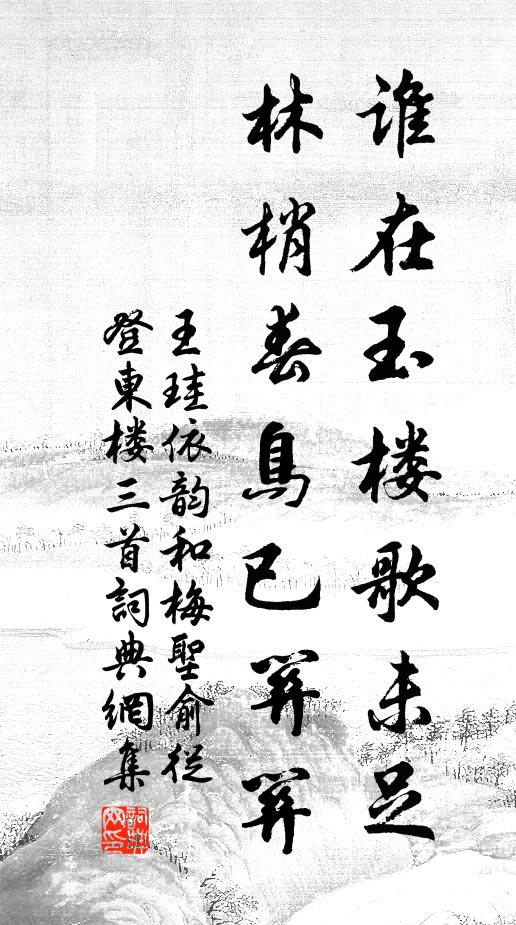 谁在玉楼歌未足
林梢春鳥已關關
王珪依韵和梅聖俞從
登東楼三首詞典網集